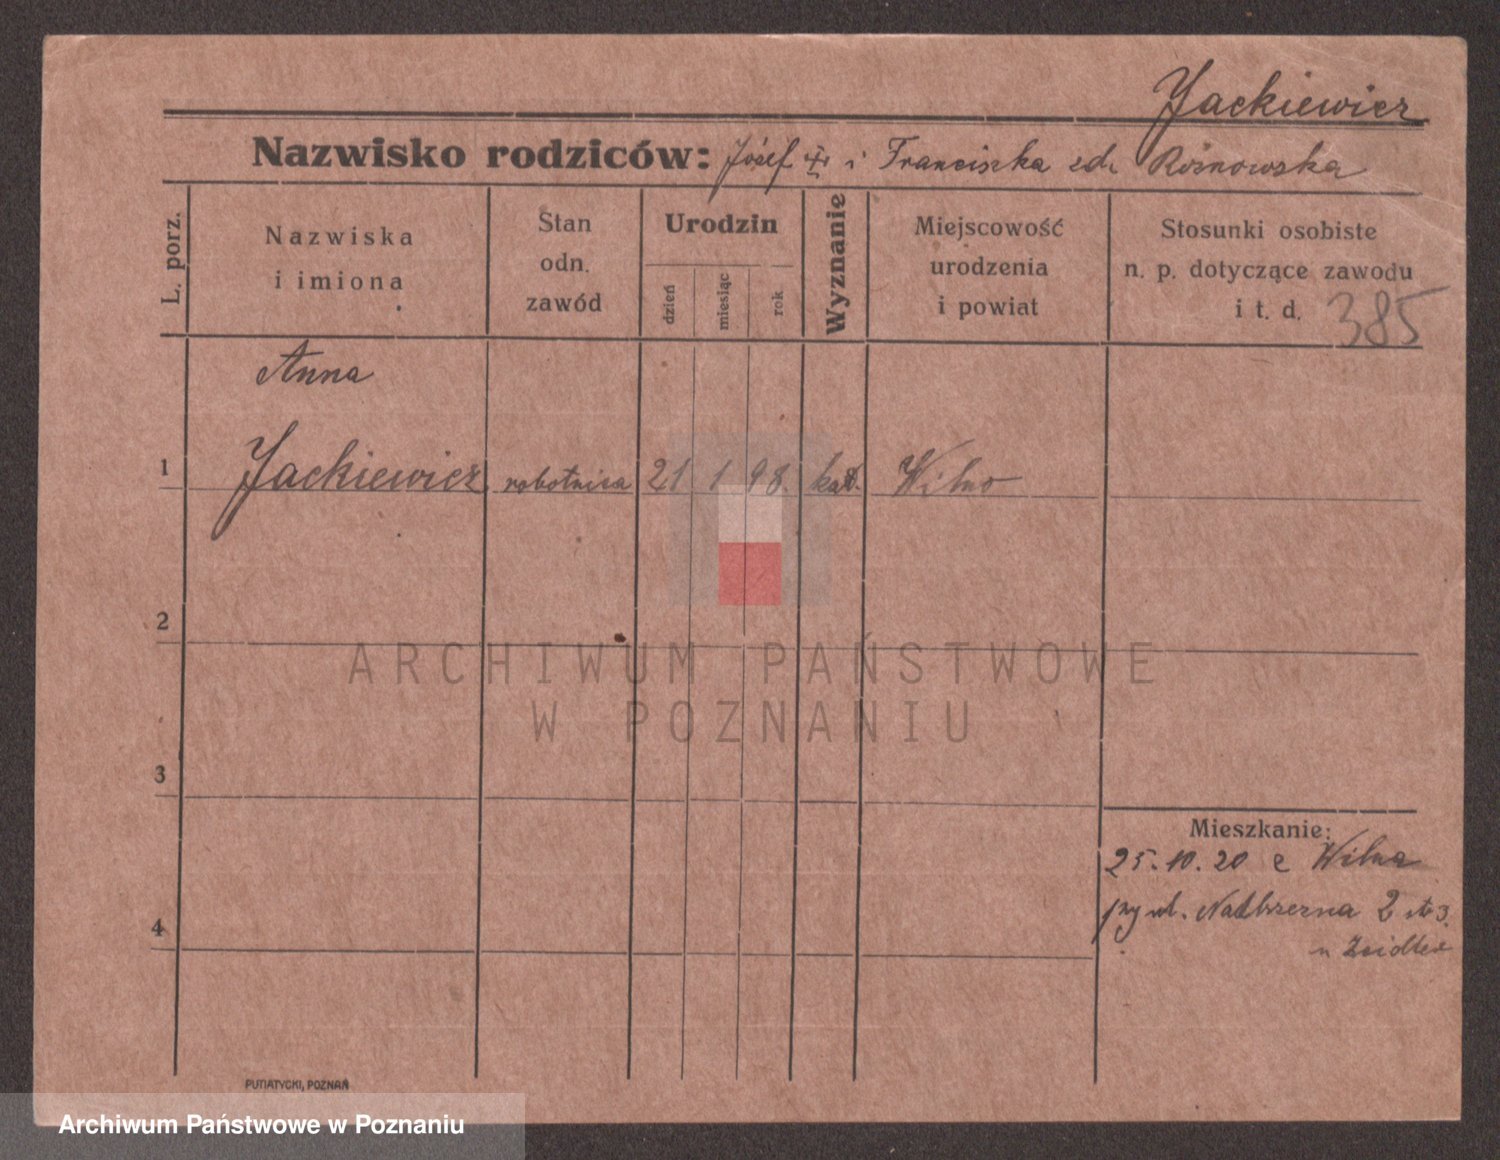 Jackiewicz
Nazwisko rodziców: Józef i Franciszka zd. Rożnowska
L. porz.
Nazwiska
i imiona
Stan
odn.
zawód
Urodzin
dzień
miesiąc
rok
Wyznanie
Miejscowość
urodzenia
i powiat
Stosunki osobiste
n. p. dotyczące zawodu
i t. d. 385
Anna
1 Jackiewicz robotnica 21 1 98. kat. Wilno
2
ARCHIWUM PAŃSTWOWE
W POZNANIU
3
Mieszkanie:
25.10.20 z Wilna
przy ul. Nadbrzezna 2
4
PUTIATYCKI, POZNAŃ
Archiwum Państwowe w Poznaniu